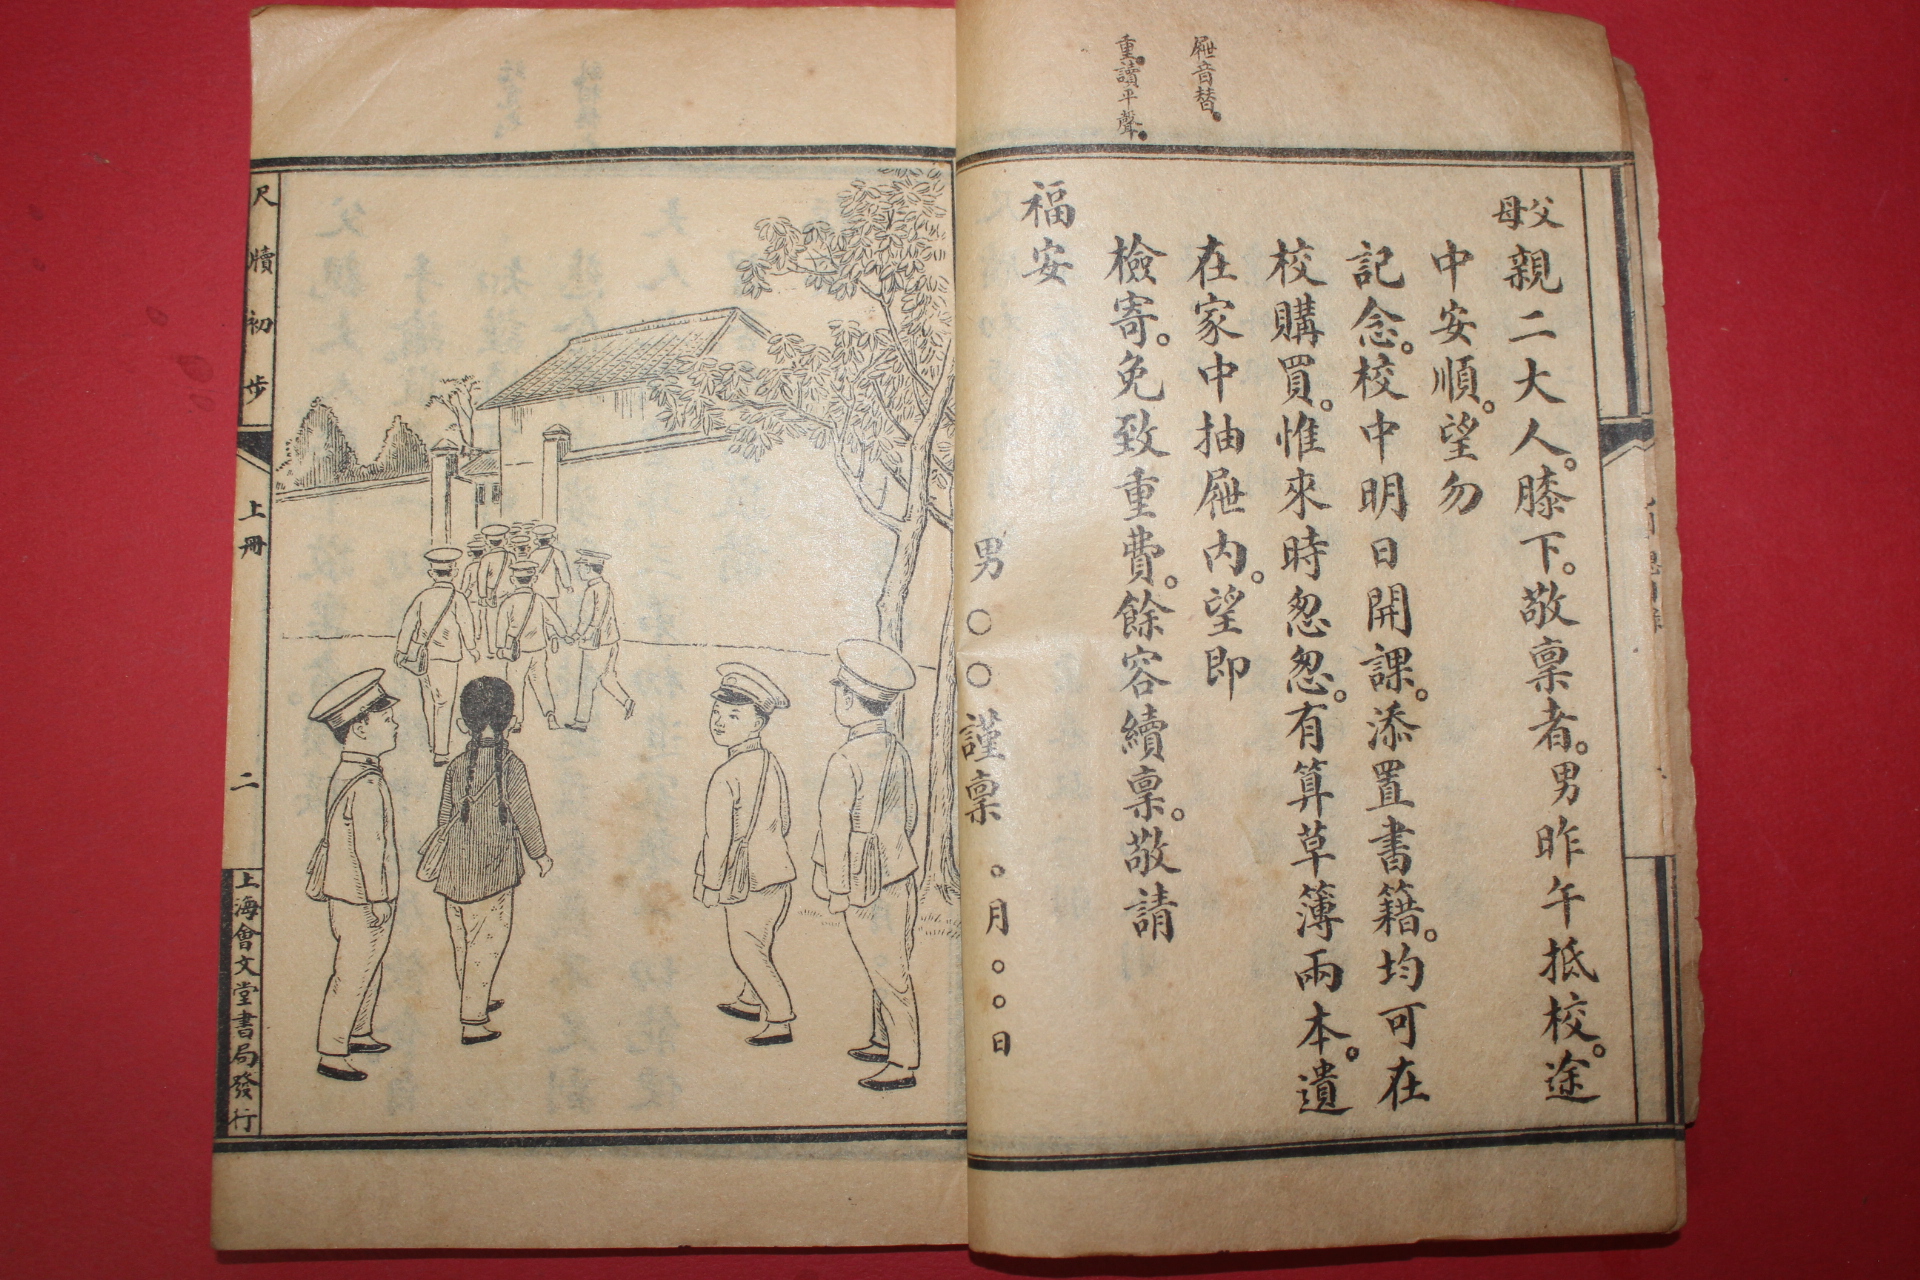 屜音替。
重讀平聲。
父母親二大人。膝下。敬稟者。男昨午抵校。途
中安順。望勿
記念。校中明日開課。添置書籍。均可在
校購買。惟來時怱怱忽。有算草簿兩本。遺
在家中抽屜內。望即
檢寄。免致重費。餘容續稟。敬請
福安
男〇〇謹稟 〇月〇〇日
尺牘初步
上冊
二
上海會文堂書局發行